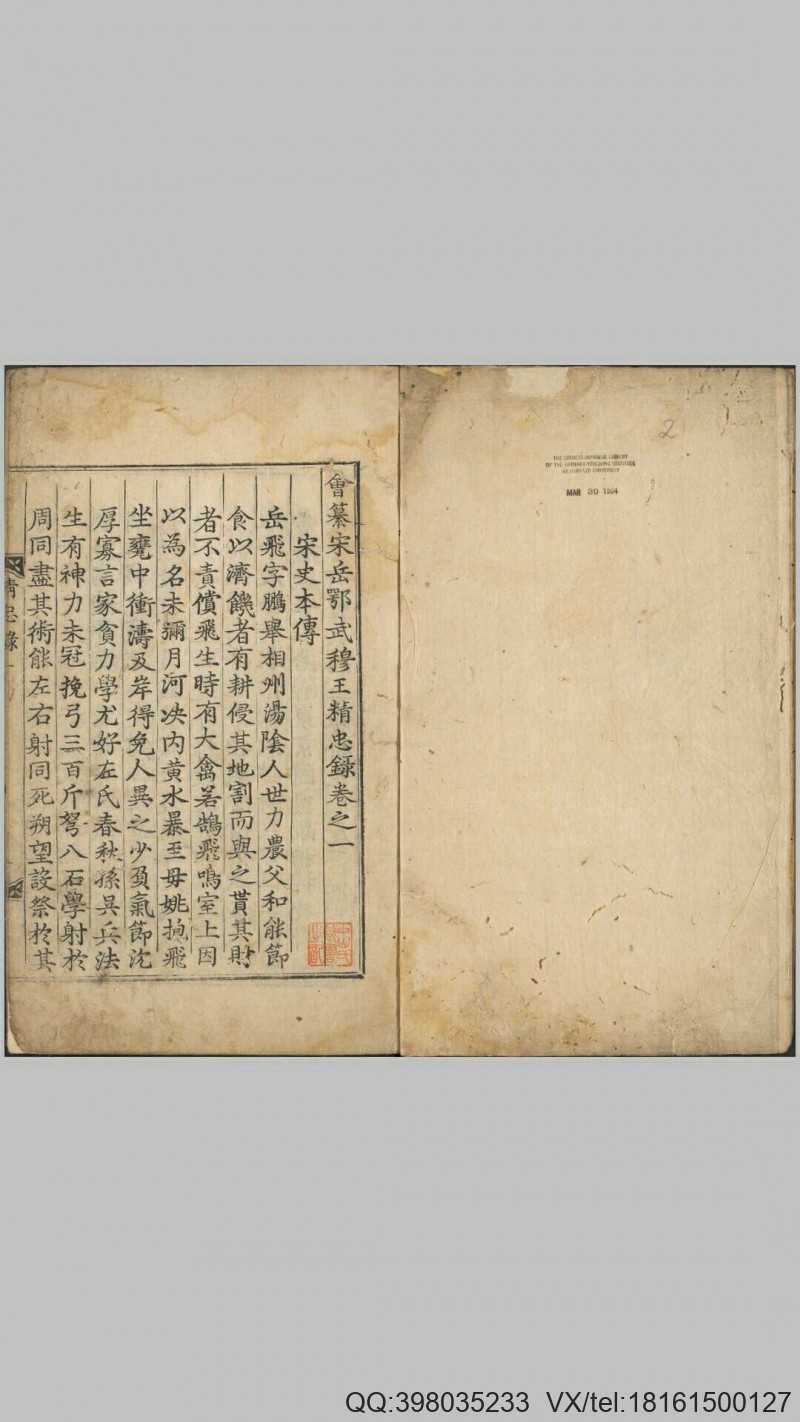 會纂宋岳鄂武穆王精忠錄卷之一
宋史本傳
岳飛字鵬舉相州湯陰人世力農父和能節
食以濟饑者有耕侵其地割而與之貰其財
者不責償飛生時有大禽若鵠飛鳴室上因
以為名未彌月河決內黃水暴至母姚抱飛
坐甕中衝濤及岸得免人異之少負氣節沈
厚寡言家貧力學尤好左氏春秋孫吳兵法
生有神力未冠挽弓三百斤弩八石學射於
周同盡其術能左右射同死朔望設祭於其
2
MAR 30 1954
QQ:398035233 VX/tel:18161500127